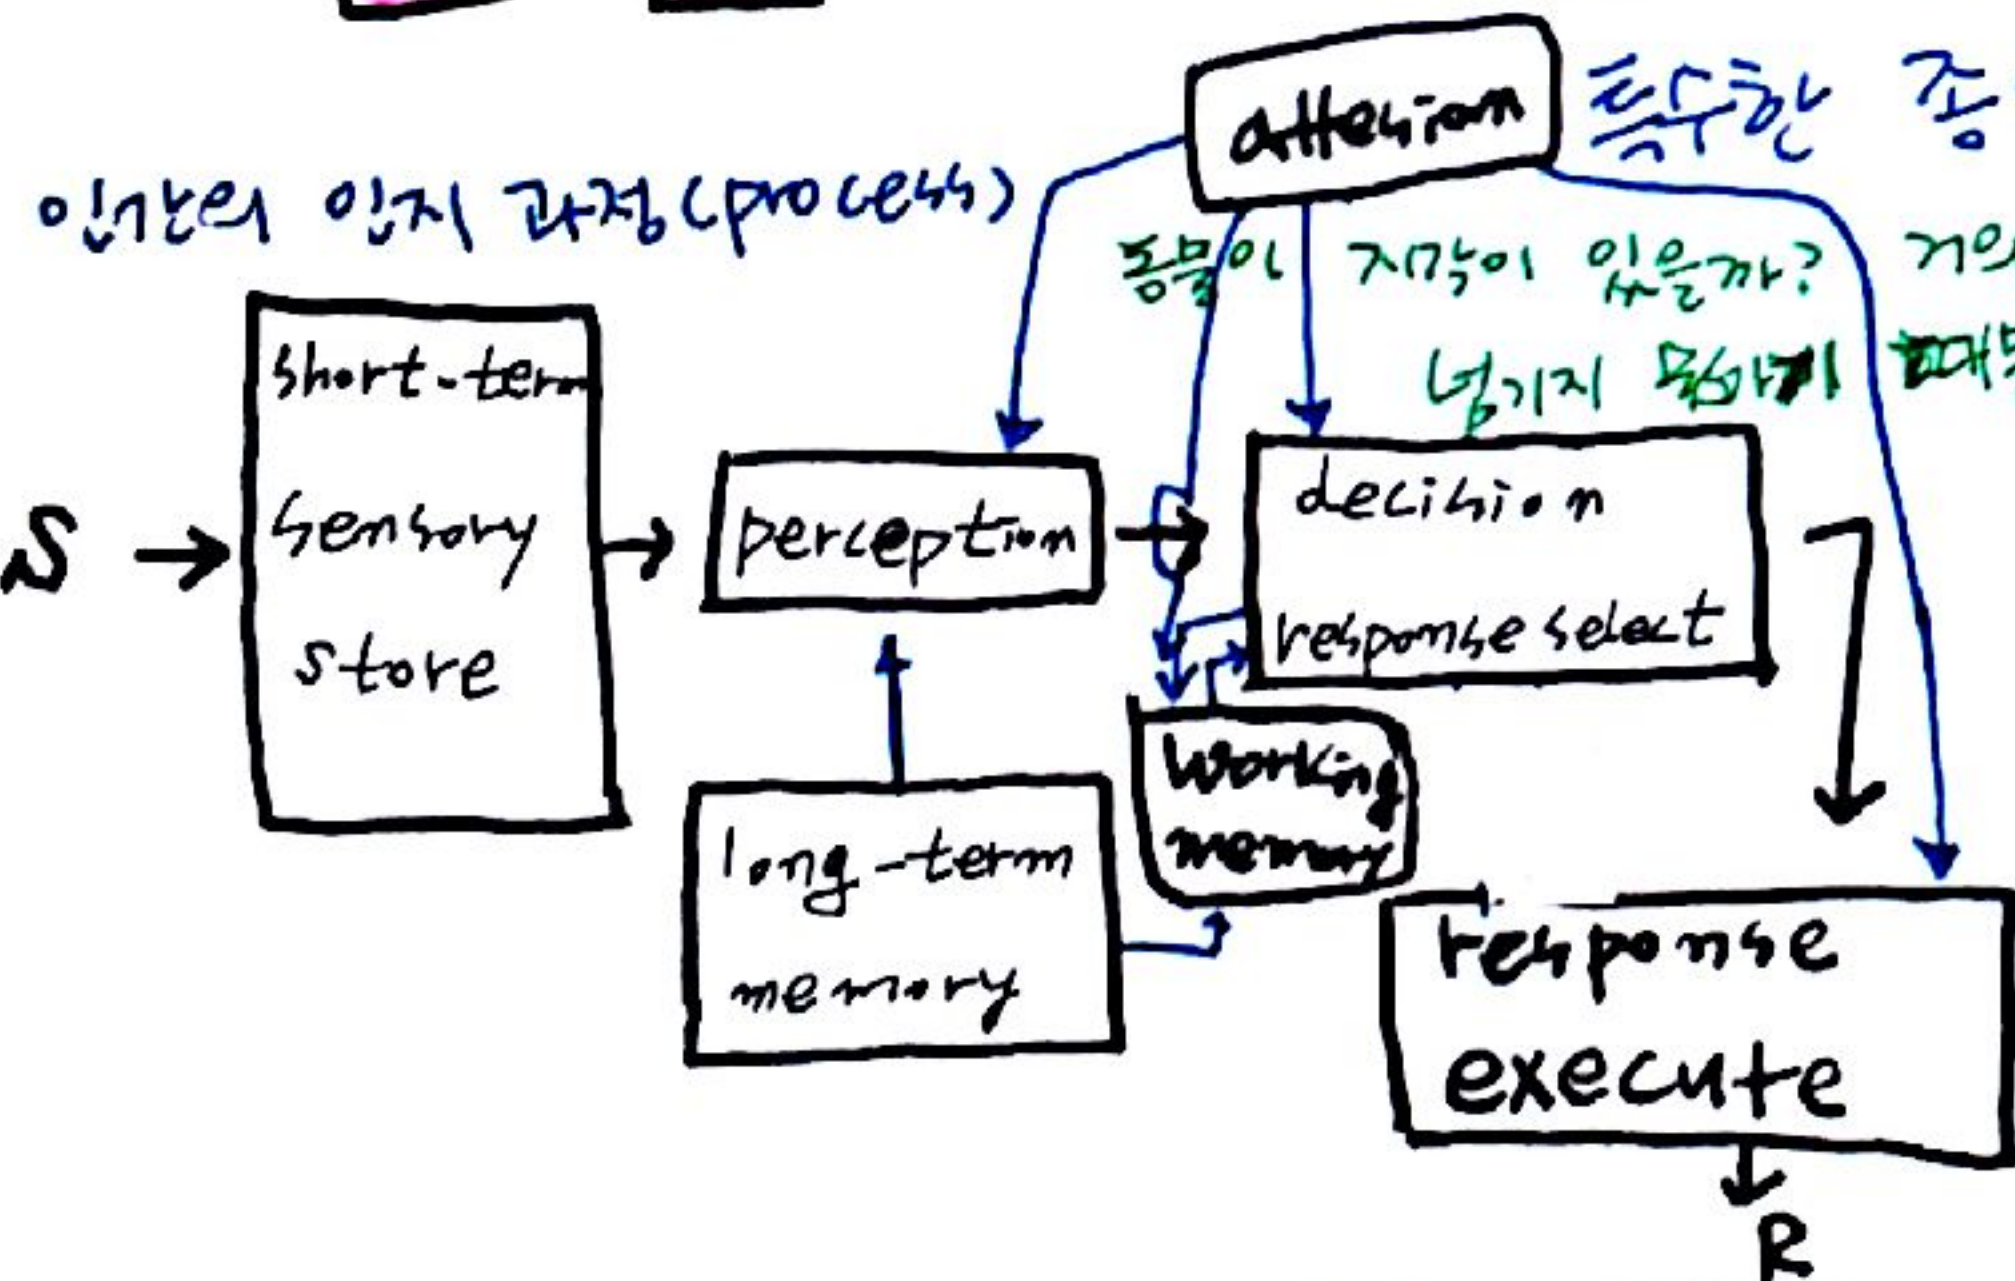 attension 특수한
인간의 인지 과정(process)
동물이 지각이 있을까?
넘기지
short-term
sensory
store
S
perception
decision
response select
working
memory
long-term
memory
response
execute
R